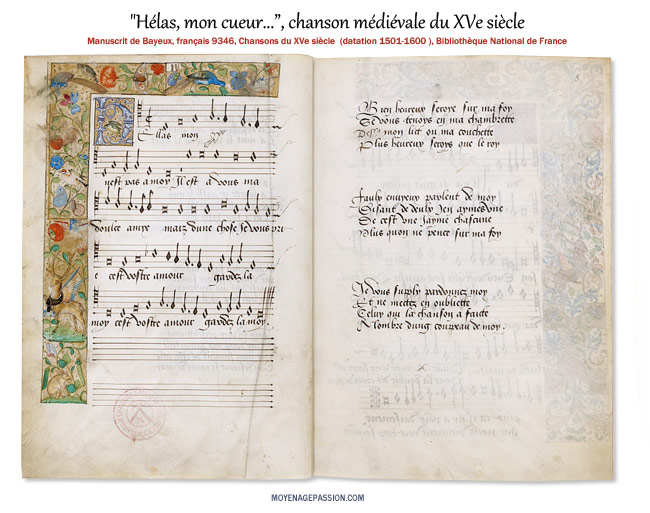 "Hélas, mon cueur...”, chanson médiévale du XVe siècle
Manuscrit de Bayeux, français 9346, Chansons du XVe siècle (datation 1501-1600 ), Bibliothèque National de France
Ellas mon
nest pas a moy Il est a vous ma
doulce amye mais dune chose je vous pri
e cest vostre amour gardez la
moy cest vostre amour gardez la moy.
Bien heureux seroye sur ma foy
Si vous tenoys en ma chambrette
Dessus mon lit ou ma couchette
Plus heureux seroys que le roy
Faulx envyeux parlent de moy
Disant de deulx jen aymes une
De cest une jayme chascune
Plus quon ne pence sur ma foy
Je vous supply pardonnez moy
Et ne mectez en oubliette
Celuy qui la chanson a faicte
A lombre dung coupeau de moy.
MOYENAGEPASSION.COM